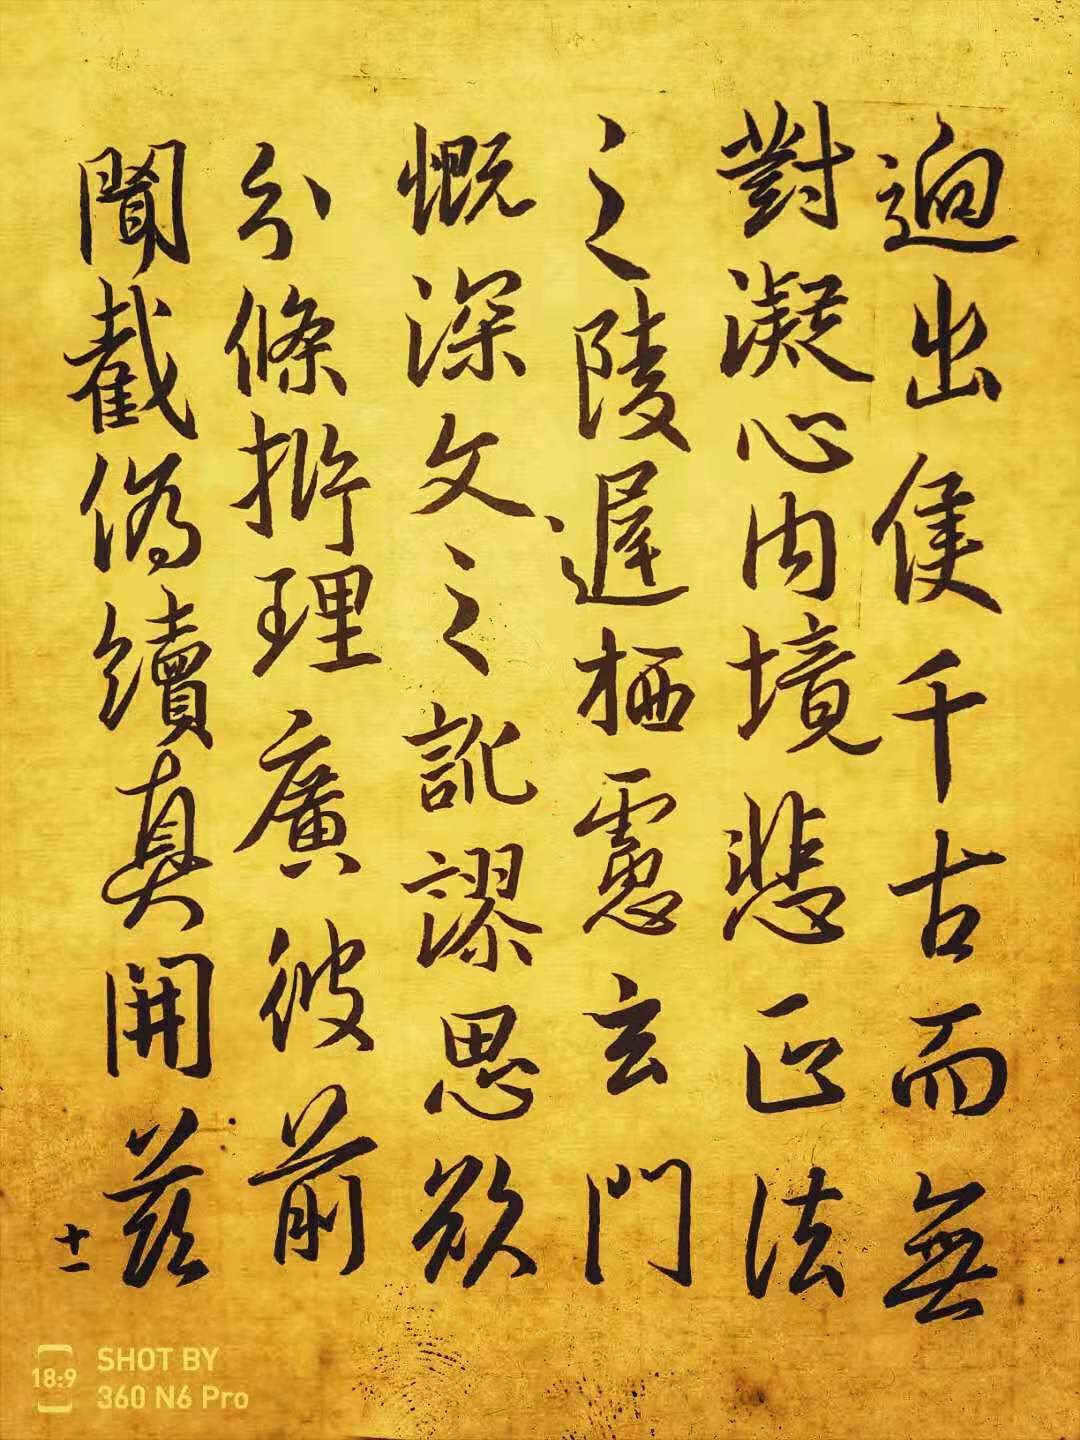 迥出隻千古而無
對凝心內境悲正法
之陵遲栖慮玄門
慨深文之訛謬思欲
分條析理廣彼前
聞截偽續真開茲
十一
18:9 SHOT BY
360 N6 Pro